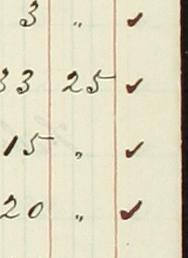 3 " ✓
33 25 ✓
15 " ✓
20 " ✓